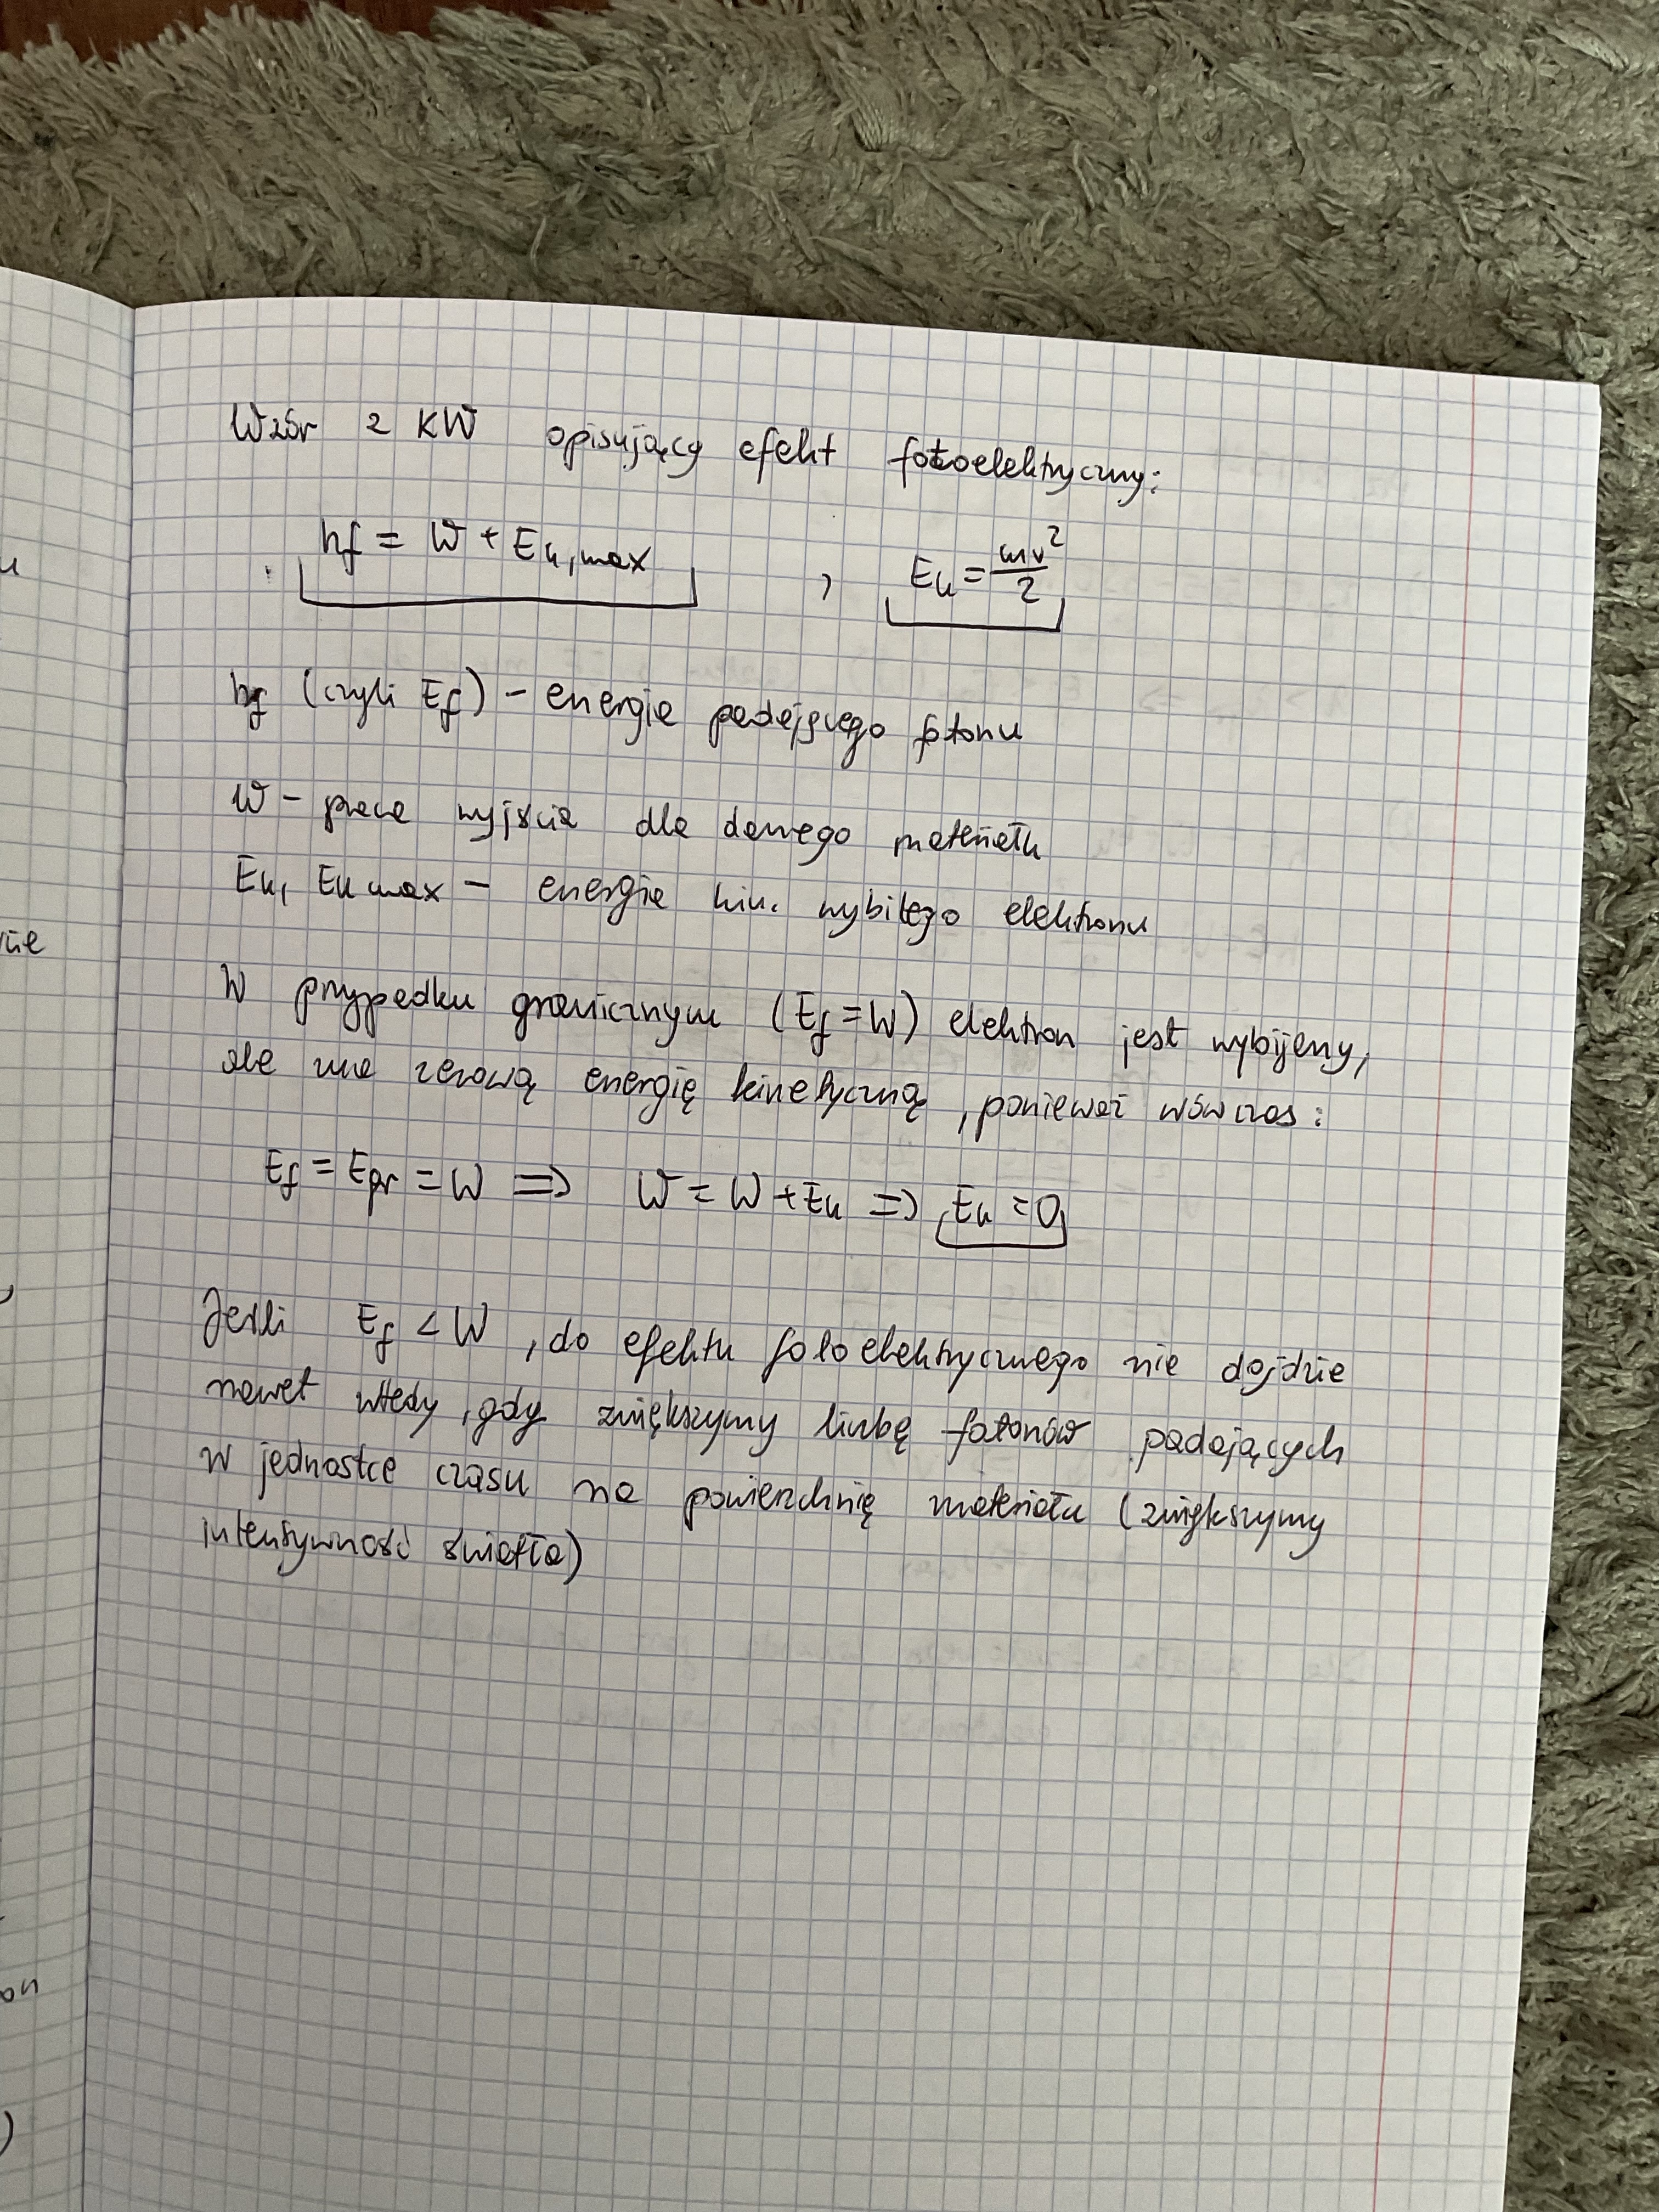 Wzór z KW opisujący efekt fotoelektryczny:
hf = W + Ek,max , Ek = mv²/2
hf (czyli Ef) - energia padającego fotonu
W - praca wyjścia dla danego materiału
Ek, Ek max - energia kin. wybitego elektronu
W przypadku granicznym (Ef = W) elektron jest wybijany,
ale ma zerową energię kinetyczną, ponieważ wówczas:
Ef = Epr = W => W = W + Ek => Ek = 0
Jeśli Ef < W, do efektu fotoelektrycznego nie dojdzie
nawet wtedy, gdy zwiększymy liczbę fotonów padających
w jednostce czasu na powierzchnię materiału (zwiększymy
intensywność światła)